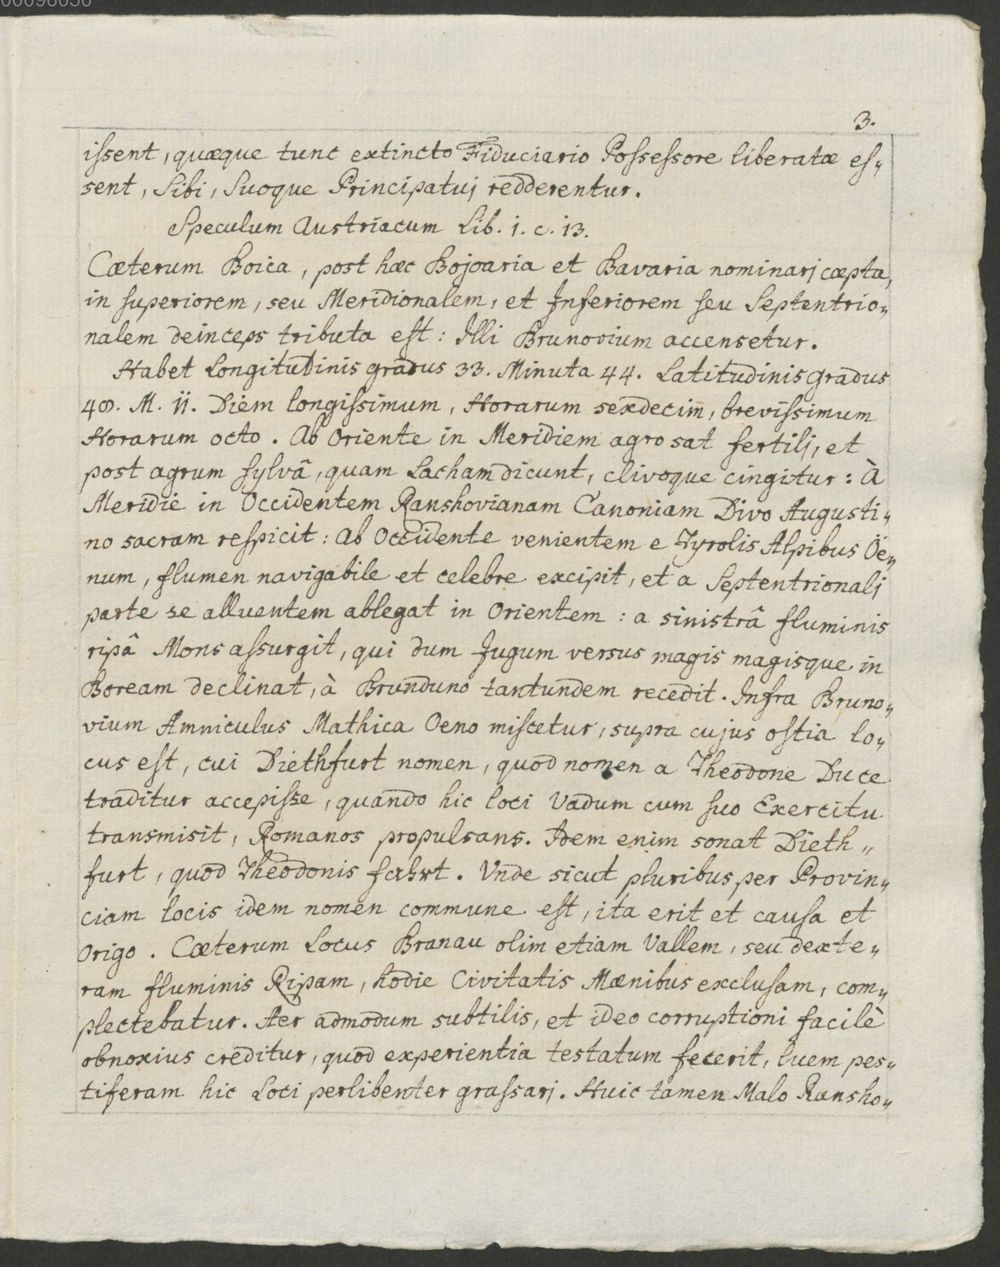 00096050
3.
issent, quæque tunc extincto Fiduciario Possessore liberatæ es„
sent, Sibi, Suoque Principatuj redderentur.
Speculum Austriacum Lib. 1. c. 13.
Cæterum Boica, post hæc Bojoaria et Bavaria nominarj cæpta,
in superiorem, seu Meridionalem, et Inferiorem seu Septentrio„
nalem deinceps tributa est: Illi Brunovium accensetur.
Habet Longitudinis gradus 33. Minuta 44. Latitudinis gradus
48. M. 11. Diem longissimum, Horarum sexdecim, brevissimum
Horarum octo. Ab Oriente in Meridiem agro sat fertilj, et
post agrum sylvâ, quam Lacham dicunt, clivoque cingitur: À
Meridie in Occidentem Ranshovianam Canoniam Divo Augusti„
no sacram respicit: Ab Occidente venientem e Tyrolis Alpibus Oe„
num, flumen navigabile et celebre excipit, et a Septentrionalj
parte se alluentem ablegat in Orientem: a sinistrâ fluminis
ripâ Mons assurgit, qui dum Jugum versus magis magisque in
Boream declinat, à Brunduno tantundem recedit. Infra Bruno„
vium Amniculus Mathica Oeno miscetur, supra cujus ostia lo„
cus est, cui Diethfurt nomen, quod nomen a Theodone Duce
traditur accepisse, quando hic loci Vadum cum suo Exercitu
transmisit, Romanos propulsans. Idem enim sonat Dieth„
furt, quod Theodonis fahrt. Unde sicut pluribus per Provin„
ciam locis idem nomen commune est, ita erit et causa et
Origo. Cæterum Locus Branau olim etiam Vallem, seu dexte„
ram fluminis Ripam, hodie Civitatis Mænibus exclusam, com„
plectebatur. Aer admodum subtilis, et ideo corruptioni facilè
obnoxius creditur, quod experientia testatum fecerit, luem pes„
tiferam hic Loci perlibenter grassarj. Huic tamen Malo Ransho„